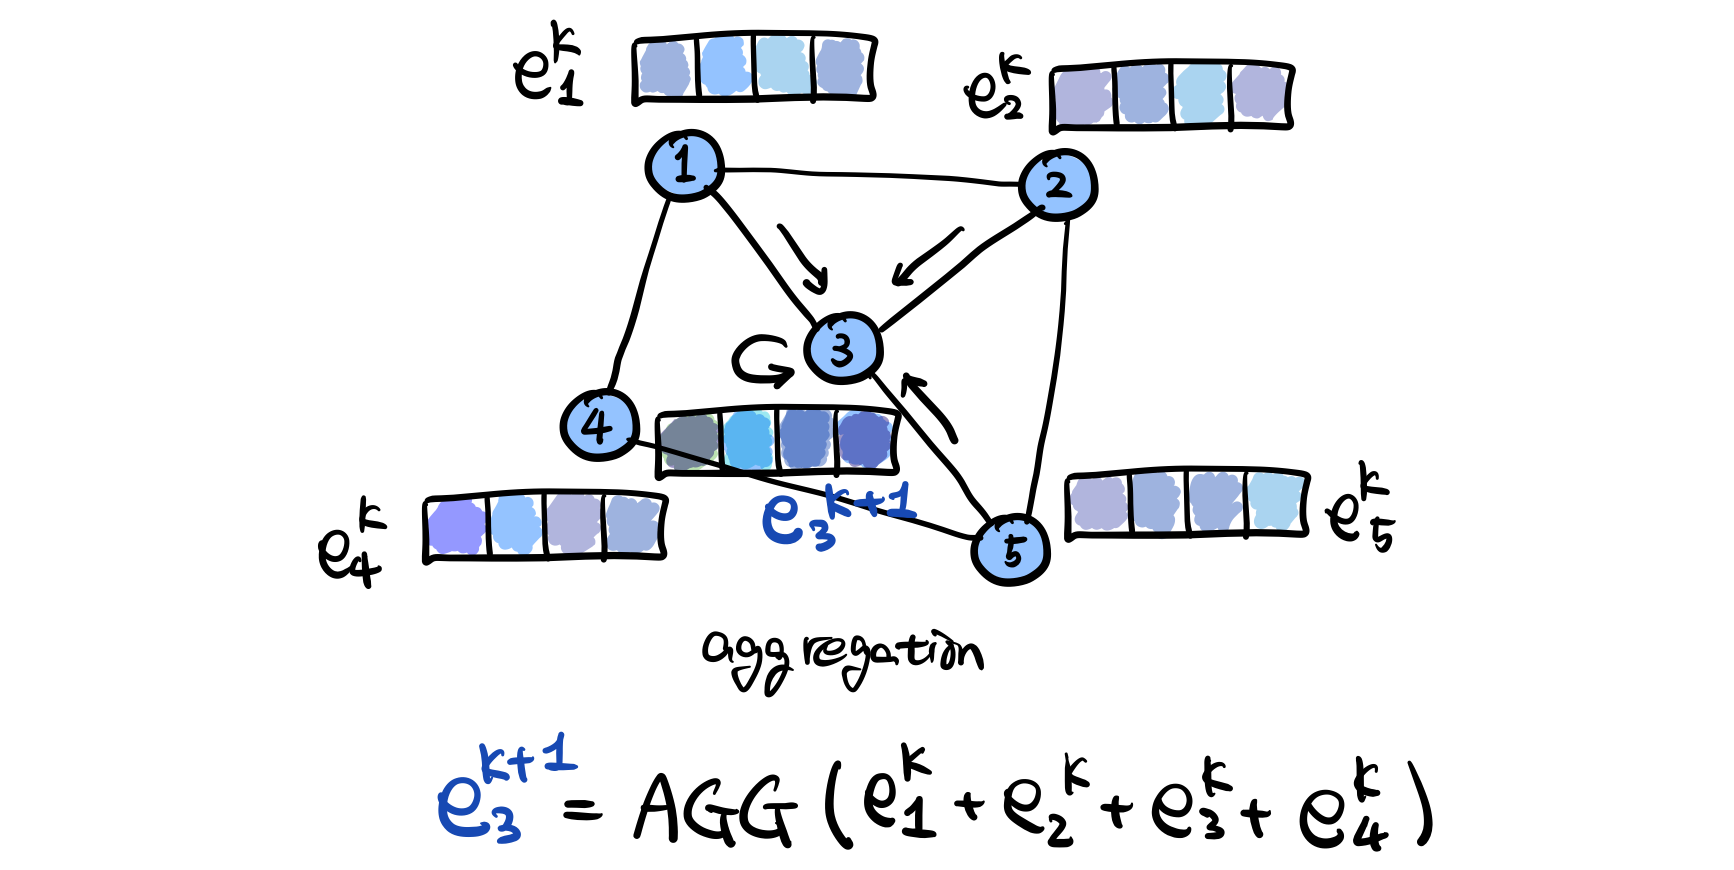 e₁ᵏ
e₂ᵏ
1
2
3
4
e₃ᵏ⁺¹
e₄ᵏ
e₅ᵏ
5
aggregation
e₃ᵏ⁺¹ = AGG (e₁ᵏ + e₂ᵏ + e₃ᵏ + e₄ᵏ)